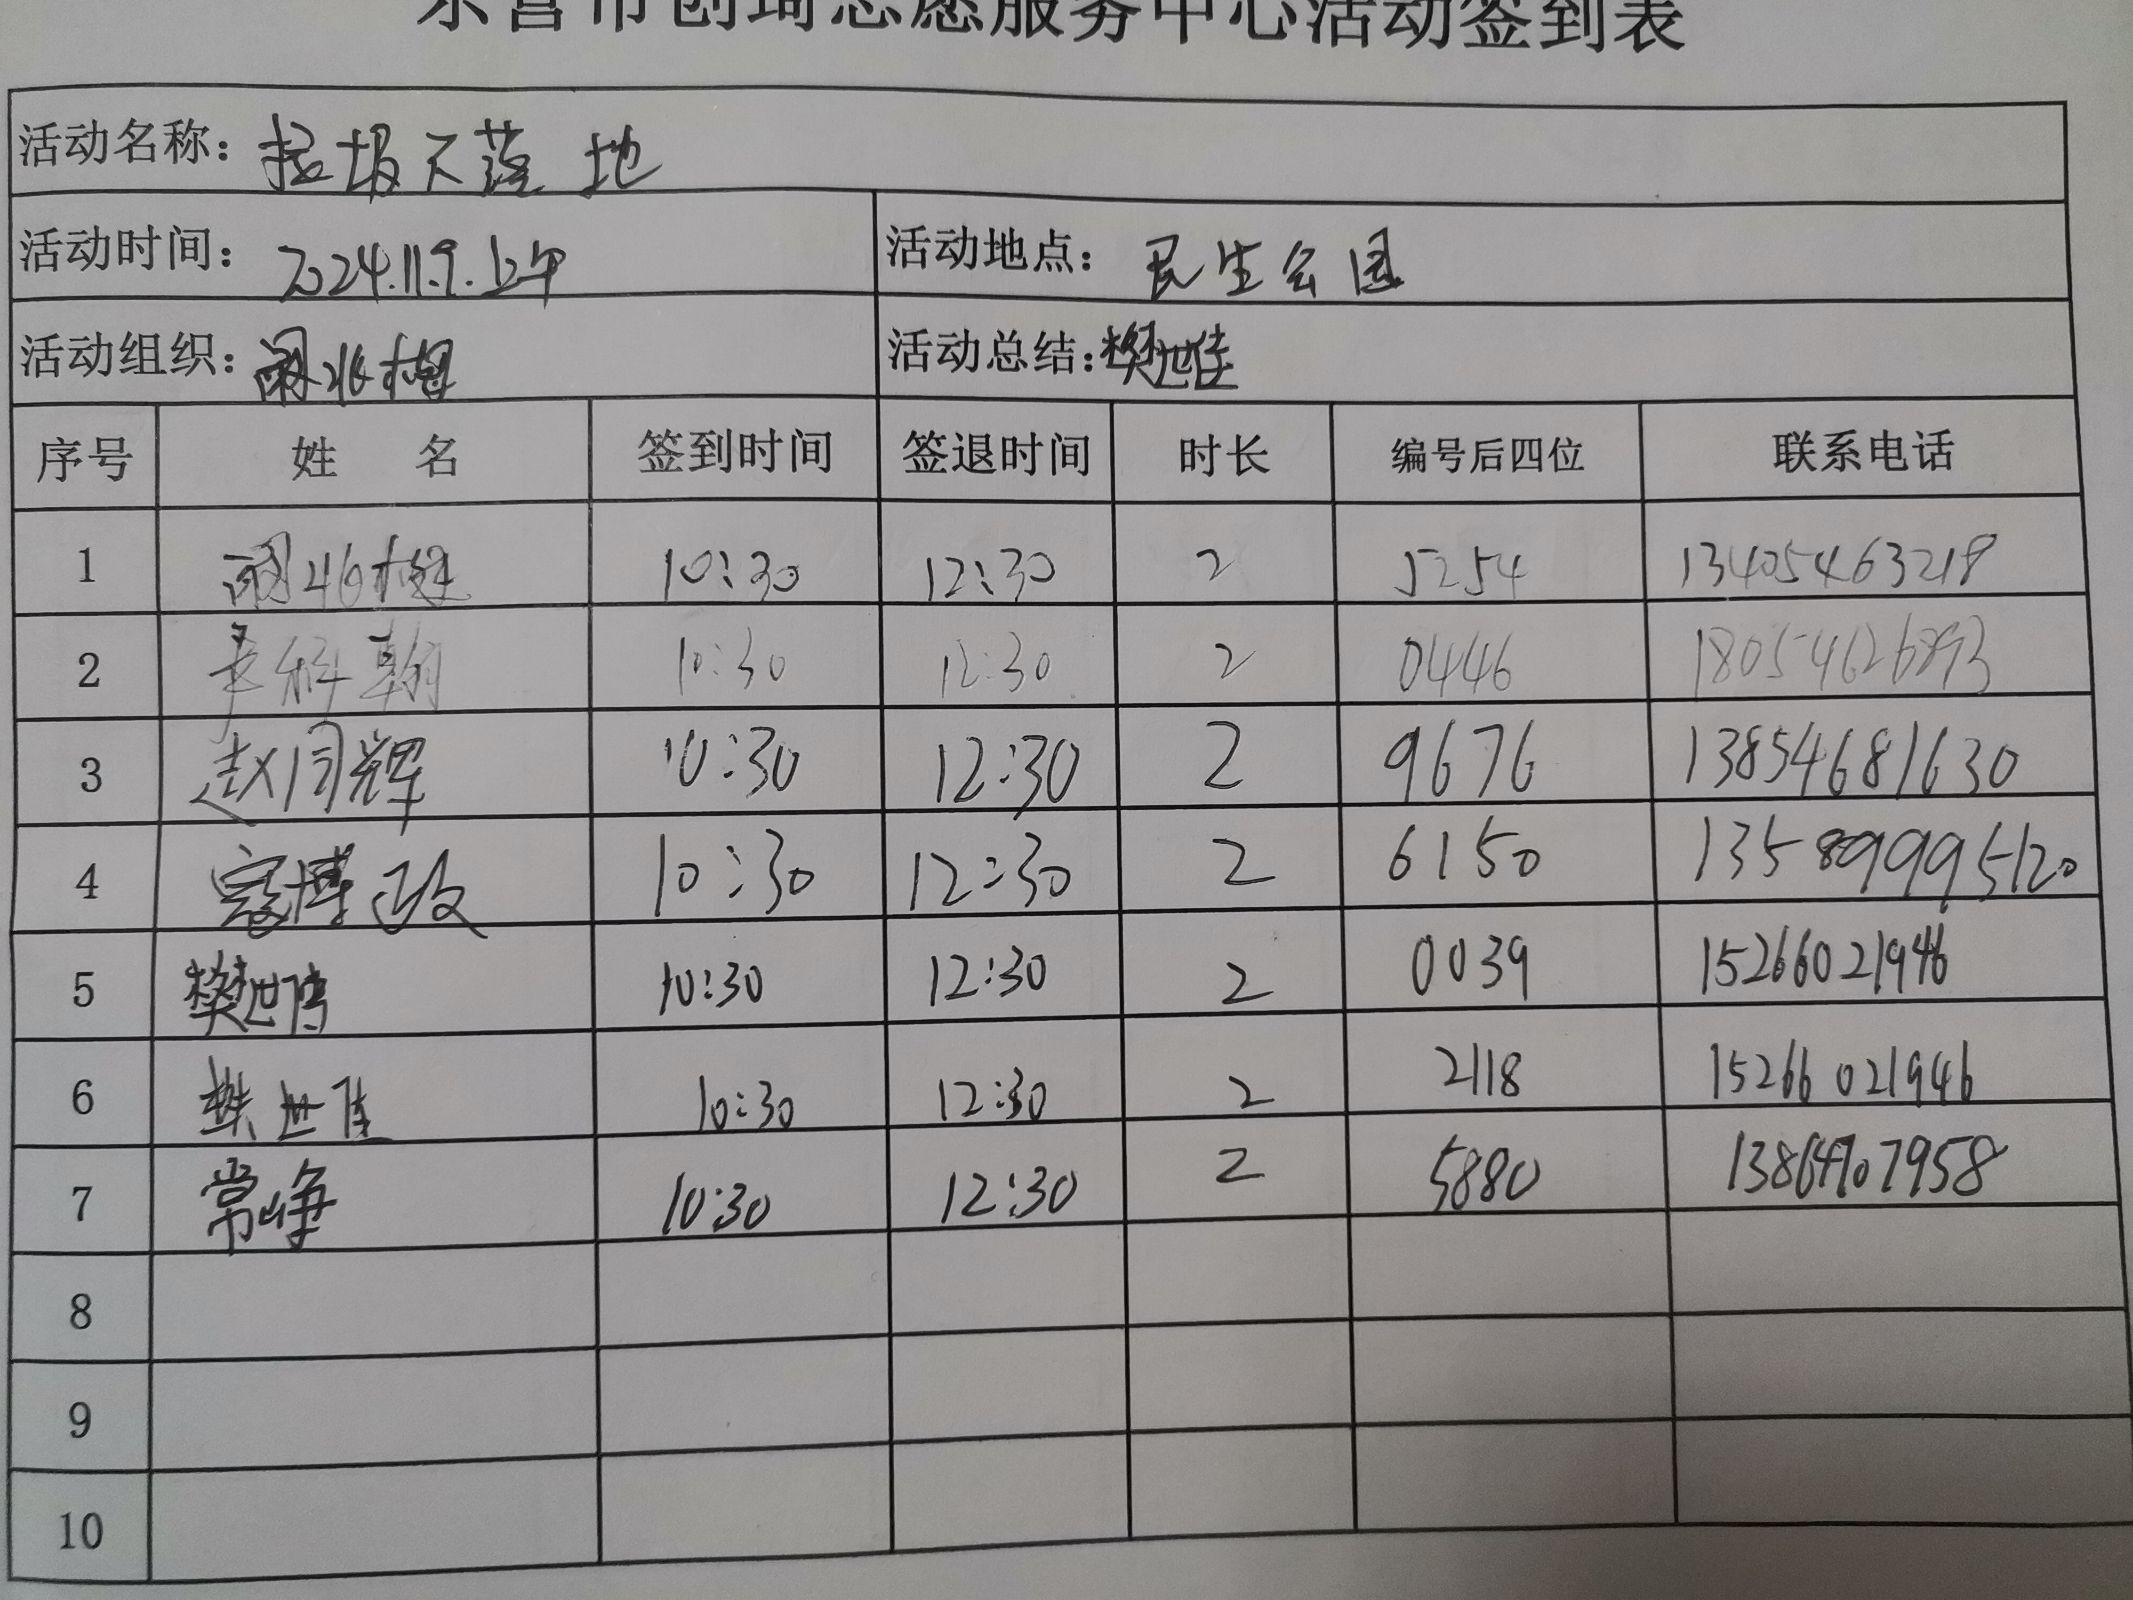 东营市创琦志愿服务中心活动签到表
活动名称：垃圾不落地
活动时间：2024.11.9.上午 活动地点：民生公园
活动组织： 活动总结：樊世佳
序号 姓 名 签到时间 签退时间 时长 编号后四位 联系电话
1 10:30 12:30 2 5254 13405463218
2 10:30 12:30 2 0446 18054626893
3 赵同辉 10:30 12:30 2 9676 13854681630
4 寇博政 10:30 12:30 2 6150 13589995120
5 樊世博 10:30 12:30 2 0039 15266021946
6 樊世佳 10:30 12:30 2 2118 15266021946
7 常峥 10:30 12:30 2 5880 13864707958
8
9
10